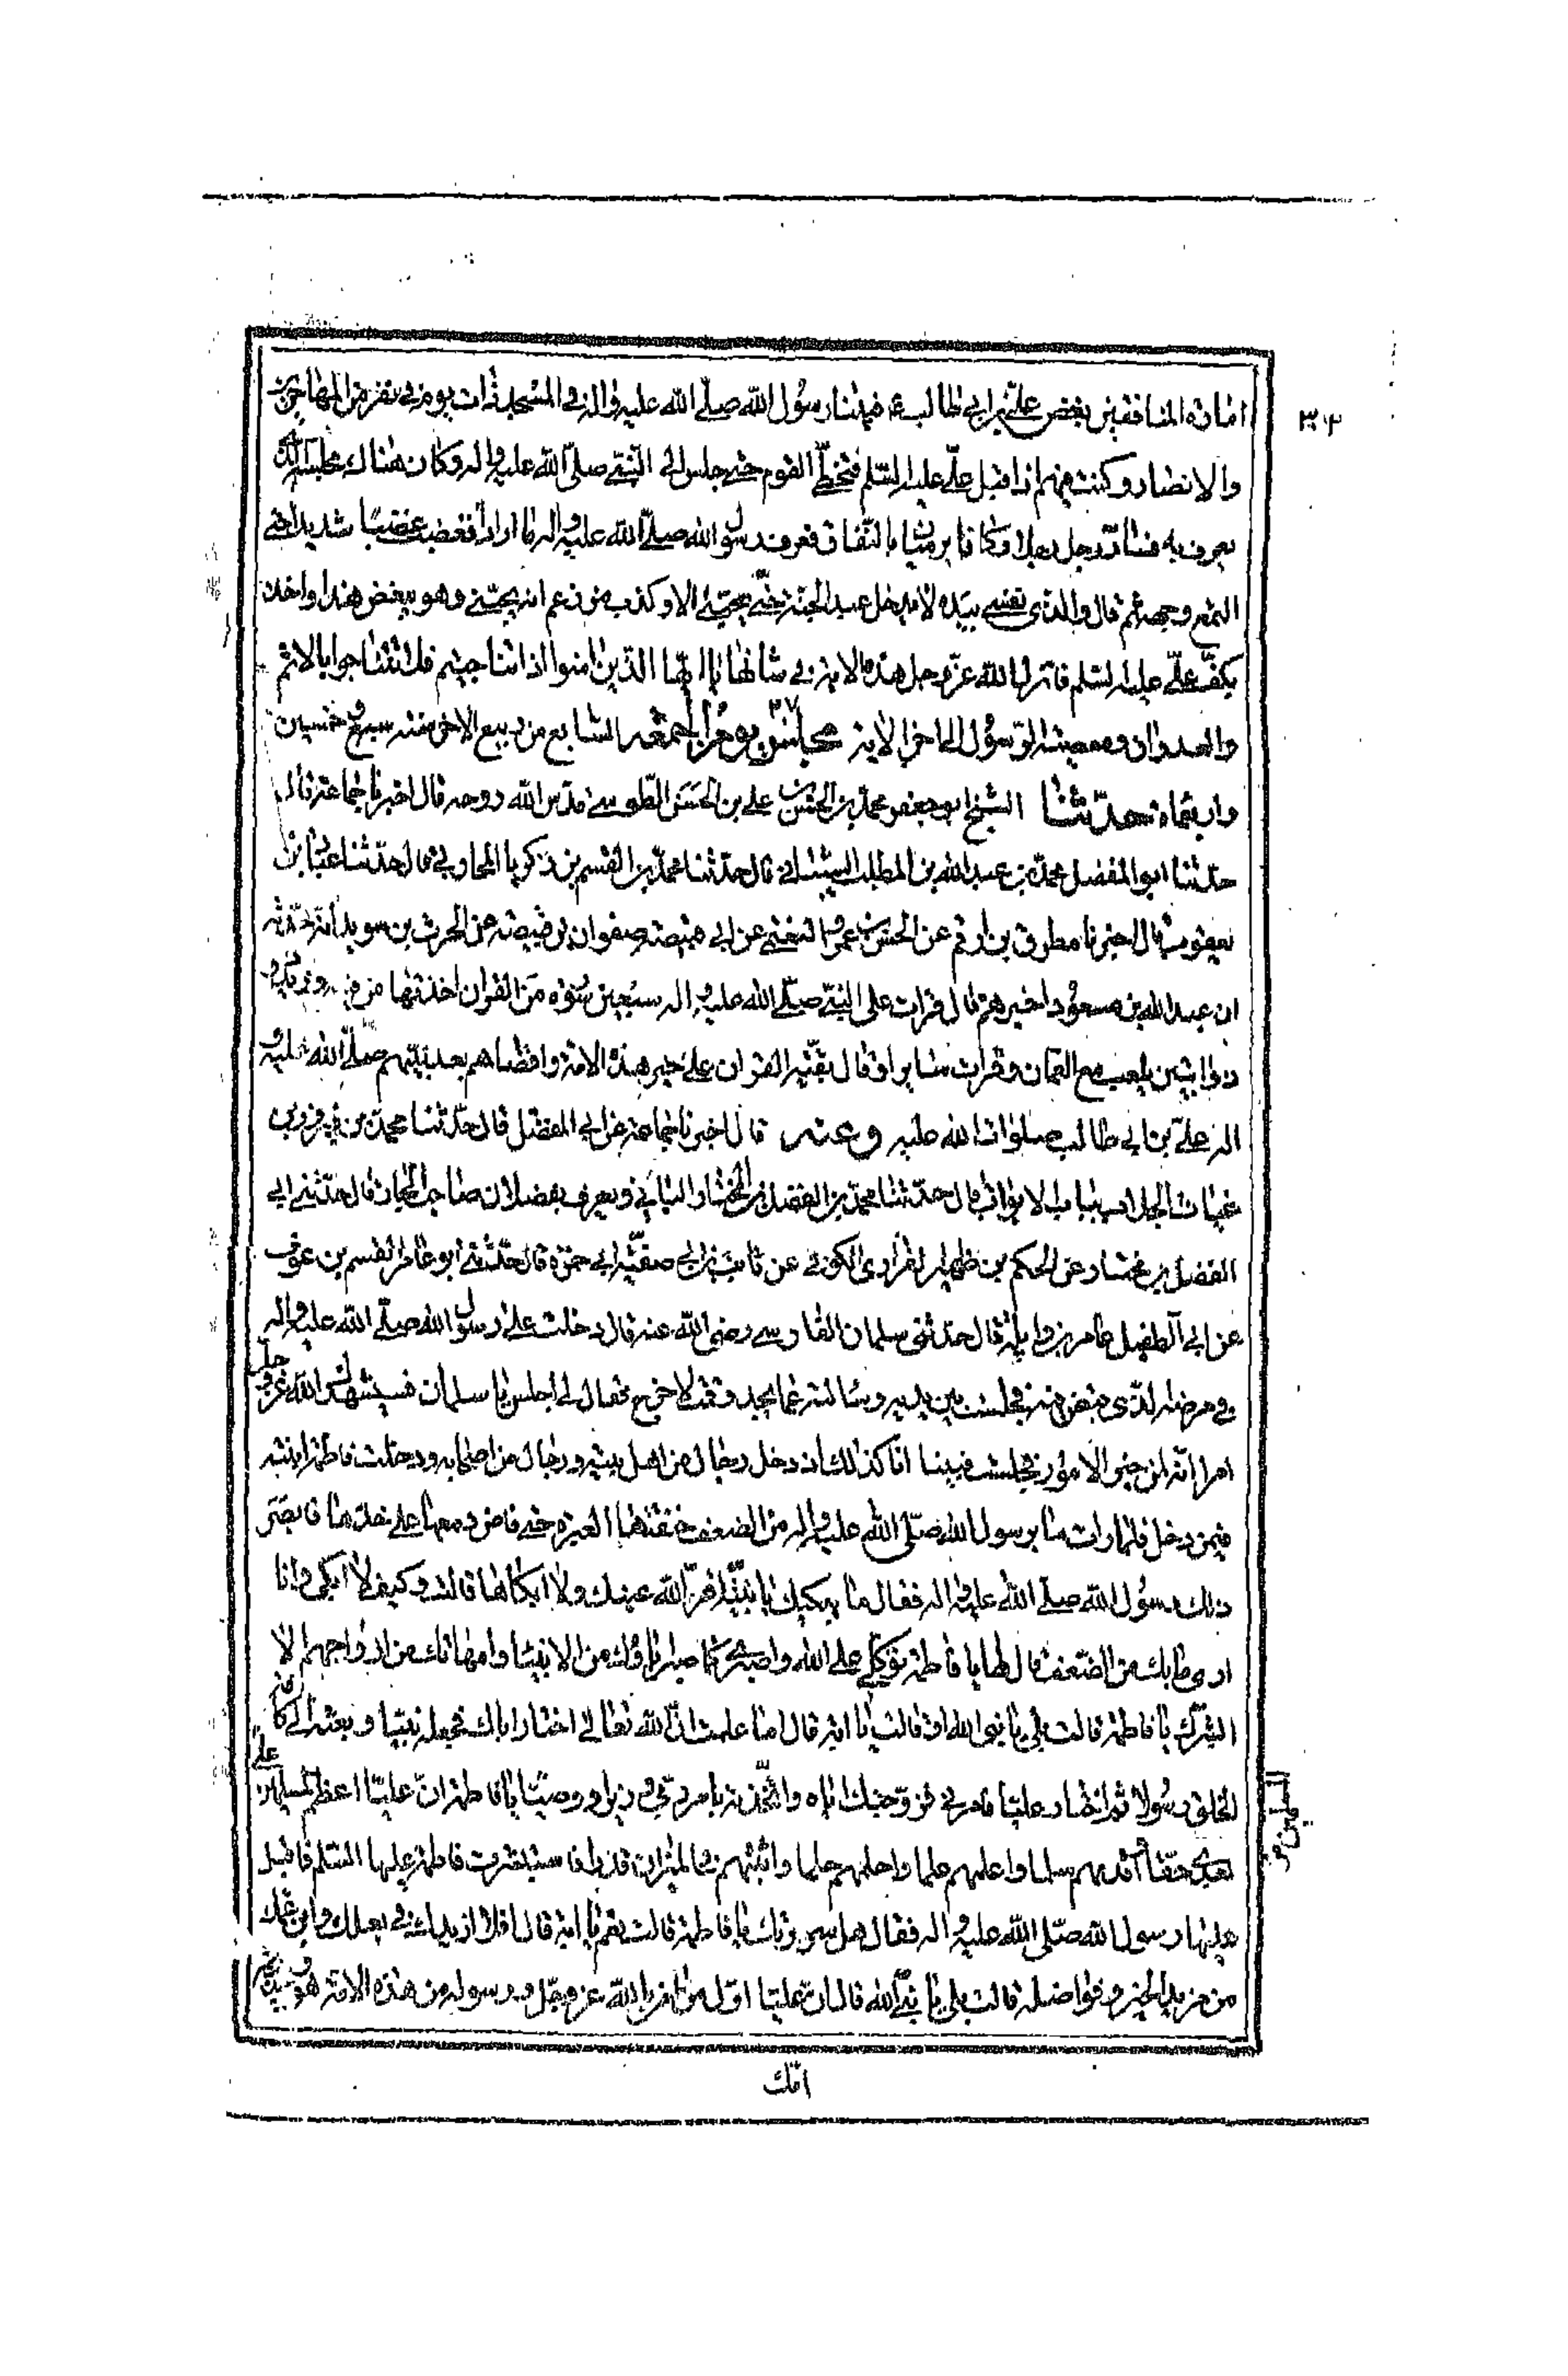 امارة المنافقين بغض علي بن ابي طالب ع فبينا رسول الله صلى الله عليه واله في المسجد ذات يوم في نفر من المهاجرين
والانصار وكنت فيهم اذا قبل علي عليه السلم فتخطى القوم حتى جلس الى النبي صلى الله عليه واله وكان هناك مجلسه الذي
يعرف به فسار رجل رجلا وكانا يرميان بالنفاق فعرف رسول الله صلى الله عليه واله ما ارادا فغضب غضبا شديدا حتى
التمع وجهه ثم قال والذي نفسي بيده لا يدخل عبد الجنة حتى يحبني الا وكذب من زعم انه يحبني وهو يبغض هذا واخذ
بكف علي عليه السلم فانزل الله عز وجل هذه الاية في شانهما يا ايها الذين امنوا اذا تناجيتم فلا تتناجوا بالاثم
والعدوان ومعصية الرسول الى اخر الاية مجلس يوم الجمعة السابع من ربيع الاخر سنة سبع وخمسين
واربعماة حدثنا الشيخ ابو جعفر محمد بن الحسن بن علي بن الحسن الطوسي قدس الله روحه قال اخبرنا جماعة قال
حدثنا ابو المفضل محمد بن عبد الله بن المطلب الشيباني قال حدثنا محمد بن القسم بن زكريا المحاربي قال حدثنا عباد بن
يعقوب قال اخبرنا مطرف بن ارقم عن الحسن بن عمرو الفقيمي عن ابي قبيصة صفوان بن قبيصة عن الحرث بن سويد انه حدثه
ان عبد الله بن مسعود اخبرهم قال قرات على النبي صلى الله عليه واله سبعين سورة من القران اخذتها من فيه وزيد
ذو ذوابتين يلعب مع الغلمان وقرات سايرا وقال بقية القران على خير هذه الامة واقضاهم بعد نبيهم صلى الله عليه و
اله علي بن ابي طالب صلوات الله عليه وعنه قال اخبرنا جماعة عن ابي المفضل قال حدثنا محمد بن فيروز بن
غياث الجلاب بباب الابواب قال حدثنا محمد بن الفضل بن المختار البابي ويعرف بفضلان صاحب الجار قال حدثني ابي
الفضل بن مختار عن الحكم بن ظهير الفزاري الكوفي عن ثابت بن ابي صفية ابي حمزة قال حدثني ابو عامر القسم بن عوف
عن ابي الطفيل عامر بن واثلة قال حدثني سلمان الفارسي رضي الله عنه قال دخلت على رسول الله صلى الله عليه واله
في مرضه الذي قبض فيه فجلست بين يديه وسالته عما يجد وقمت لاخرج فقال لي اجلس يا سلمان فسيشهدك الله عز وجل
امرا انه لمن خير الامور فجلست فبينا انا كذلك اذ دخل رجال من اهل بيته ورجال من اصحابه ودخلت فاطمة ابنته
فيمن دخل فلما رات ما برسول الله صلى الله عليه واله من الضعف خنقتها العبرة حتى فاض دمعها على خدها فابصر
ذلك رسول الله صلى الله عليه واله فقال ما يبكيك يا بنية اقر الله عينك ولا ابكاها قالت وكيف لا ابكي وانا
ارى ما بك من الضعف قال لها يا فاطمة توكلي على الله واصبري كما صبر اباؤك من الانبياء وامهاتك من ازواجهم الا
ابشرك يا فاطمة قالت بلى يا نبي الله او قالت يا ابة قال اما علمت ان الله تعالى اختار اباك فجعله نبيا وبعثه الى كافة
الخلق رسولا ثم اختار عليا فامرني فزوجتك اياه واتخذته بامر ربي وزيرا ووصيا يا فاطمة ان عليا اعظم المسلمين على
المسلمين
بعدي حقا اقدمهم سلما واعلمهم علما واحلمهم حلما واثبتهم في الميزان قدرا فاستبشرت فاطمة عليها السلم فاقبل
عليها رسول الله صلى الله عليه واله فقال هل سررتك يا فاطمة قالت نعم يا ابة قال افلا ازيدك في بعلك وابن عمك
من مزيد الخير وفواضله قالت بلى يا نبي الله قال ان عليا اول من امن بالله عز وجل ورسوله من هذه الامة هو وخديجة
امك